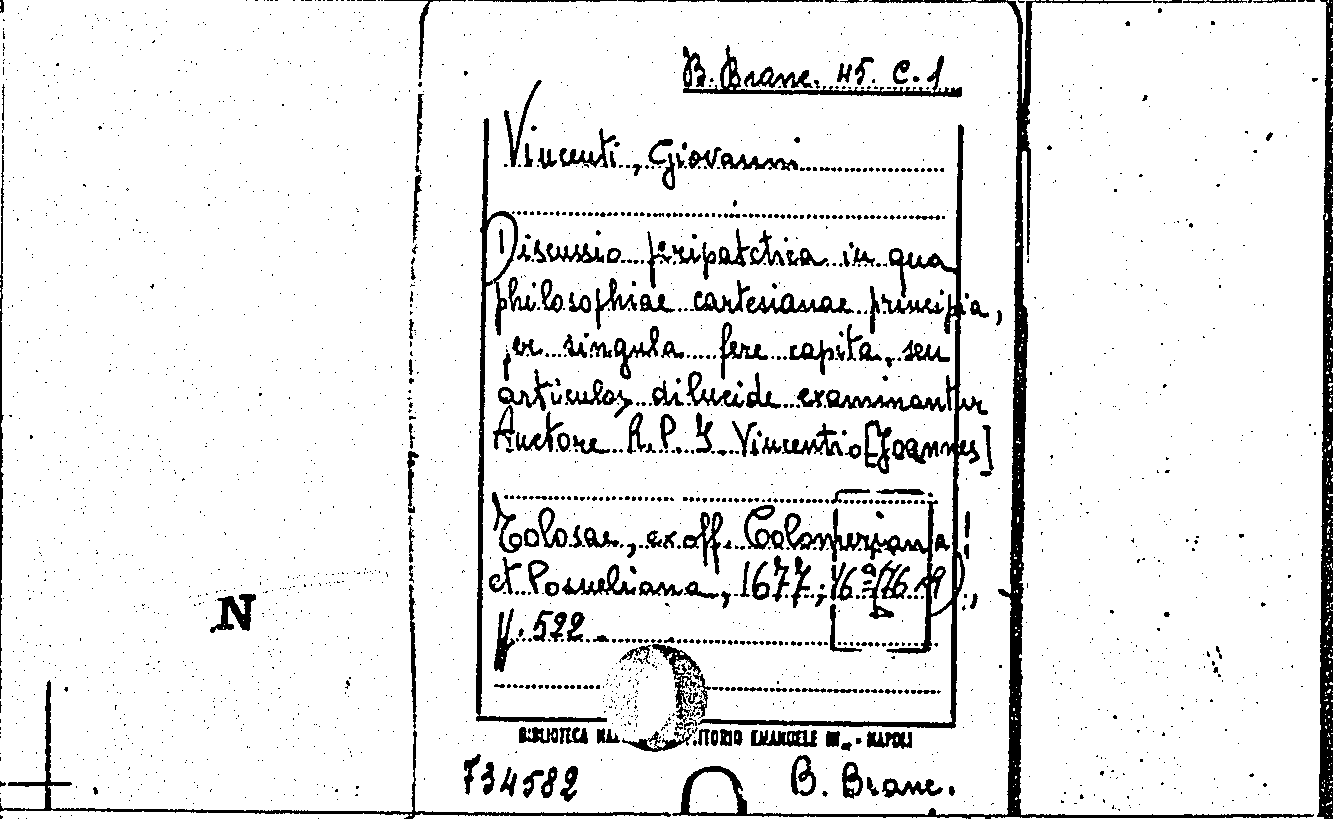 B. Branc. 45. C. 1
Vincenti, Giovanni
Discussio peripatetica in qua
philosophiae cartesianae principia,
per singula fere capita, seu
articulos dilucide examinantur
Auctore R. P. J. Vincentio [Joannes]
Tolosae, ex off. Colomeriana
et Posueliana, 1677; 16º
p. 522.
N
BIBLIOTECA VITTORIO EMANUELE III - NAPOLI
734582 B. Branc.